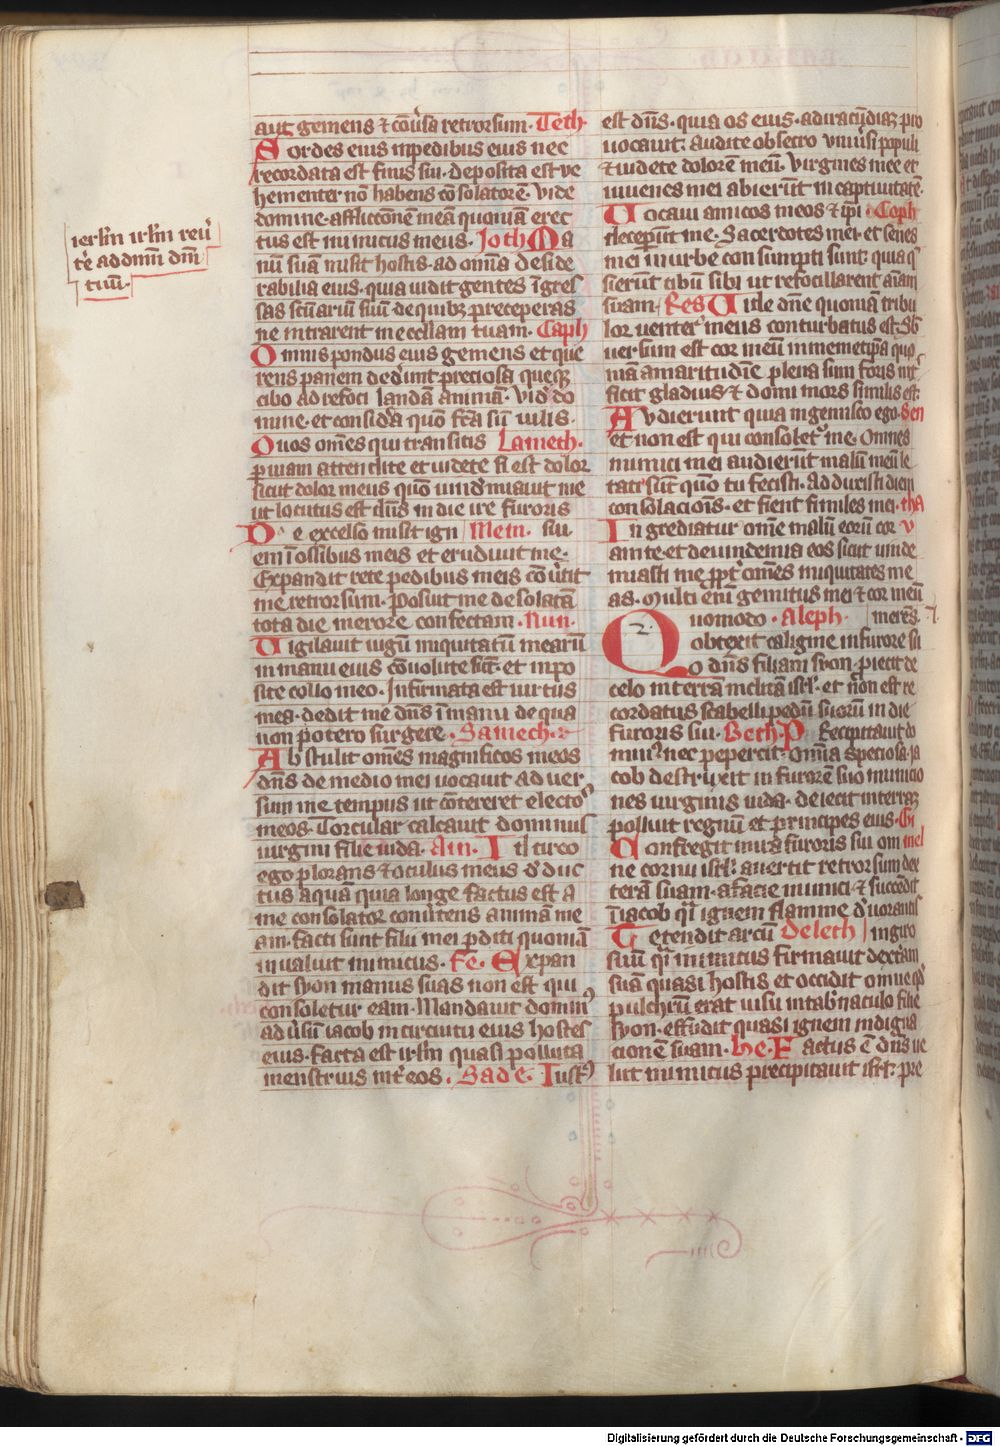 aut gemens ⁊ cōu̾sa retrorsum. Teth.
Sordes eius inpedibus eius nec
recordata est finis sui. deposita est ve
hementer nō habens cōsolatorē. vide
domine. affliccōnem meā quoniā erec
tus est inimicus meus. Joth Ma
nū suā misit hostis. ad om̄ia deside
rabilia eius. quia uidit gentes īgres
sas scūariū suū de quibz preceperas
ne intrarent in eccl̄am tuam. Caph
Omnis pondus eius gemens et que
rens panem dederunt preciosa queq̄
cibo ad refocilandā animā. vide do
mine. et considera quō fc̄a sū uilis.
Ouos om̄es qui transitis Lameth.
per uiam attendite et uidete si est dolor
sicut dolor meus quō uindemiauit me
ut locutus est dn̄s in die ire furoris
De excelso misit ign Mem. sui
em ī ossibus meis et erudiuit me.
Expandit rete pedibus meis cōu̾tit
me retrorsum. Posuit me desolatā
tota die merore confectam. Nun.
Uigilauit iugū iniquitatū mearū
in manu eius cōuolute sūt. et inpo
site collo meo. Infirmata est uirtus
mea. dedit me dn̄s ī manu de qua
non potero surgere. Samech.
Abstulit om̄es magnificos meos
dn̄s de medio mei uocauit aduer
sum me tempus ut cōtereret electos
meos. Torcular calcauit dominus
uirgini filie iuda. Ain. Idcirco
ego plorans ⁊ oculus meus deduc
tus aquā quia longe factus est a
me consolator conuertens animā me
am. facti sunt filii mei perditi quoniā
inualuit inimicus. Fe. Expan
dit syon manus suas non est qui
consoletur eam. Mandauit dominus
adu̾sū iacob in circuitu eius hostes
eius. facta est irlm̄ quasi polluta
menstruis int̾ eos. Sade. Iustus
est dn̄s. quia os eius. ad iracūdiā pro
uocaui: audite obsecro uniu̾si populi
⁊ uidete dolorē meū. virgines mee et
iuuenes mei abierūt in captiuitatē.
Uocaui amicos meos ⁊ ip̄i Coph
deceperūt me. Sacerdotes mei et senes
mei in urbe consumpti sunt: quia q̄
sierūt cibū sibi ut refocillarent aīam
suam. Res Uide dn̄e quoniam tribu
lor uenter meus conturbatus est. sb̄
uersum est cor meū in memetip̄a quo
niā amaritudīe plena sum foris int̾
ficit gladius ⁊ domi mors similis est.
Audierunt quia ingemisco ego. Sen
et non est qui consoletur me. Omnes
inimici mei audierūt malū meū le
tati sūt quō tu fecisti. adduxisti diem
consolacionis. et fient similes mei. tha
Ingrediatur om̄e malū eorū cor v
am te. et deuindemia eos sicut uinde
miasti me ꝓpt̾ om̄es iniquitates me
as. Multi enī gemitus mei ⁊ cor meū
Quomodo. Aleph. merēs.
2.
obtexit caligine in furore su
o dn̄s filiam syon proiecit de
celo in terrā inclitā isrl̄. et non est re
cordatus scabelli pedū suorū in die
furoris sui. Beth. Precipitauit do
minus nec pepercit. Om̄ia speciosa ia
cob destruxit in furorē suo municio
nes uirginis iuda. deiecit in terrā
polluit regnū et principes eius. Gi
Confregit in ira furoris sui om mel
ne cornu isrl̄. auertit retrorsum dex
terā suam. a facie inimici. ⁊ succēdit
ī iacob q̄i ignem flamme deuorantis
Tetendit arcū Deleth in giro
suū q̄i inimicus firmauit dext̾am
suā quasi hostis et occidit omne qd̄
pulchrū erat uisu in tabernaculo filie
syon. effudit quasi ignem indigna
cionē suam. He. Factus ē dn̄s ve
lut inimicus precipitauit isrl̄. pre
ierlm̄ irlm̄ reu̾
tē ad dn̄m dm̄
tuū.
Digitalisierung gefördert durch die Deutsche Forschungsgemeinschaft - DFG